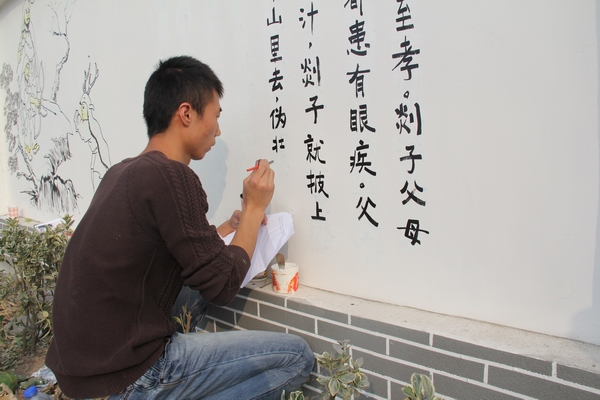 至孝。剡子父母
都患有眼疾。父
汁,剡子就披上
山里去,伪